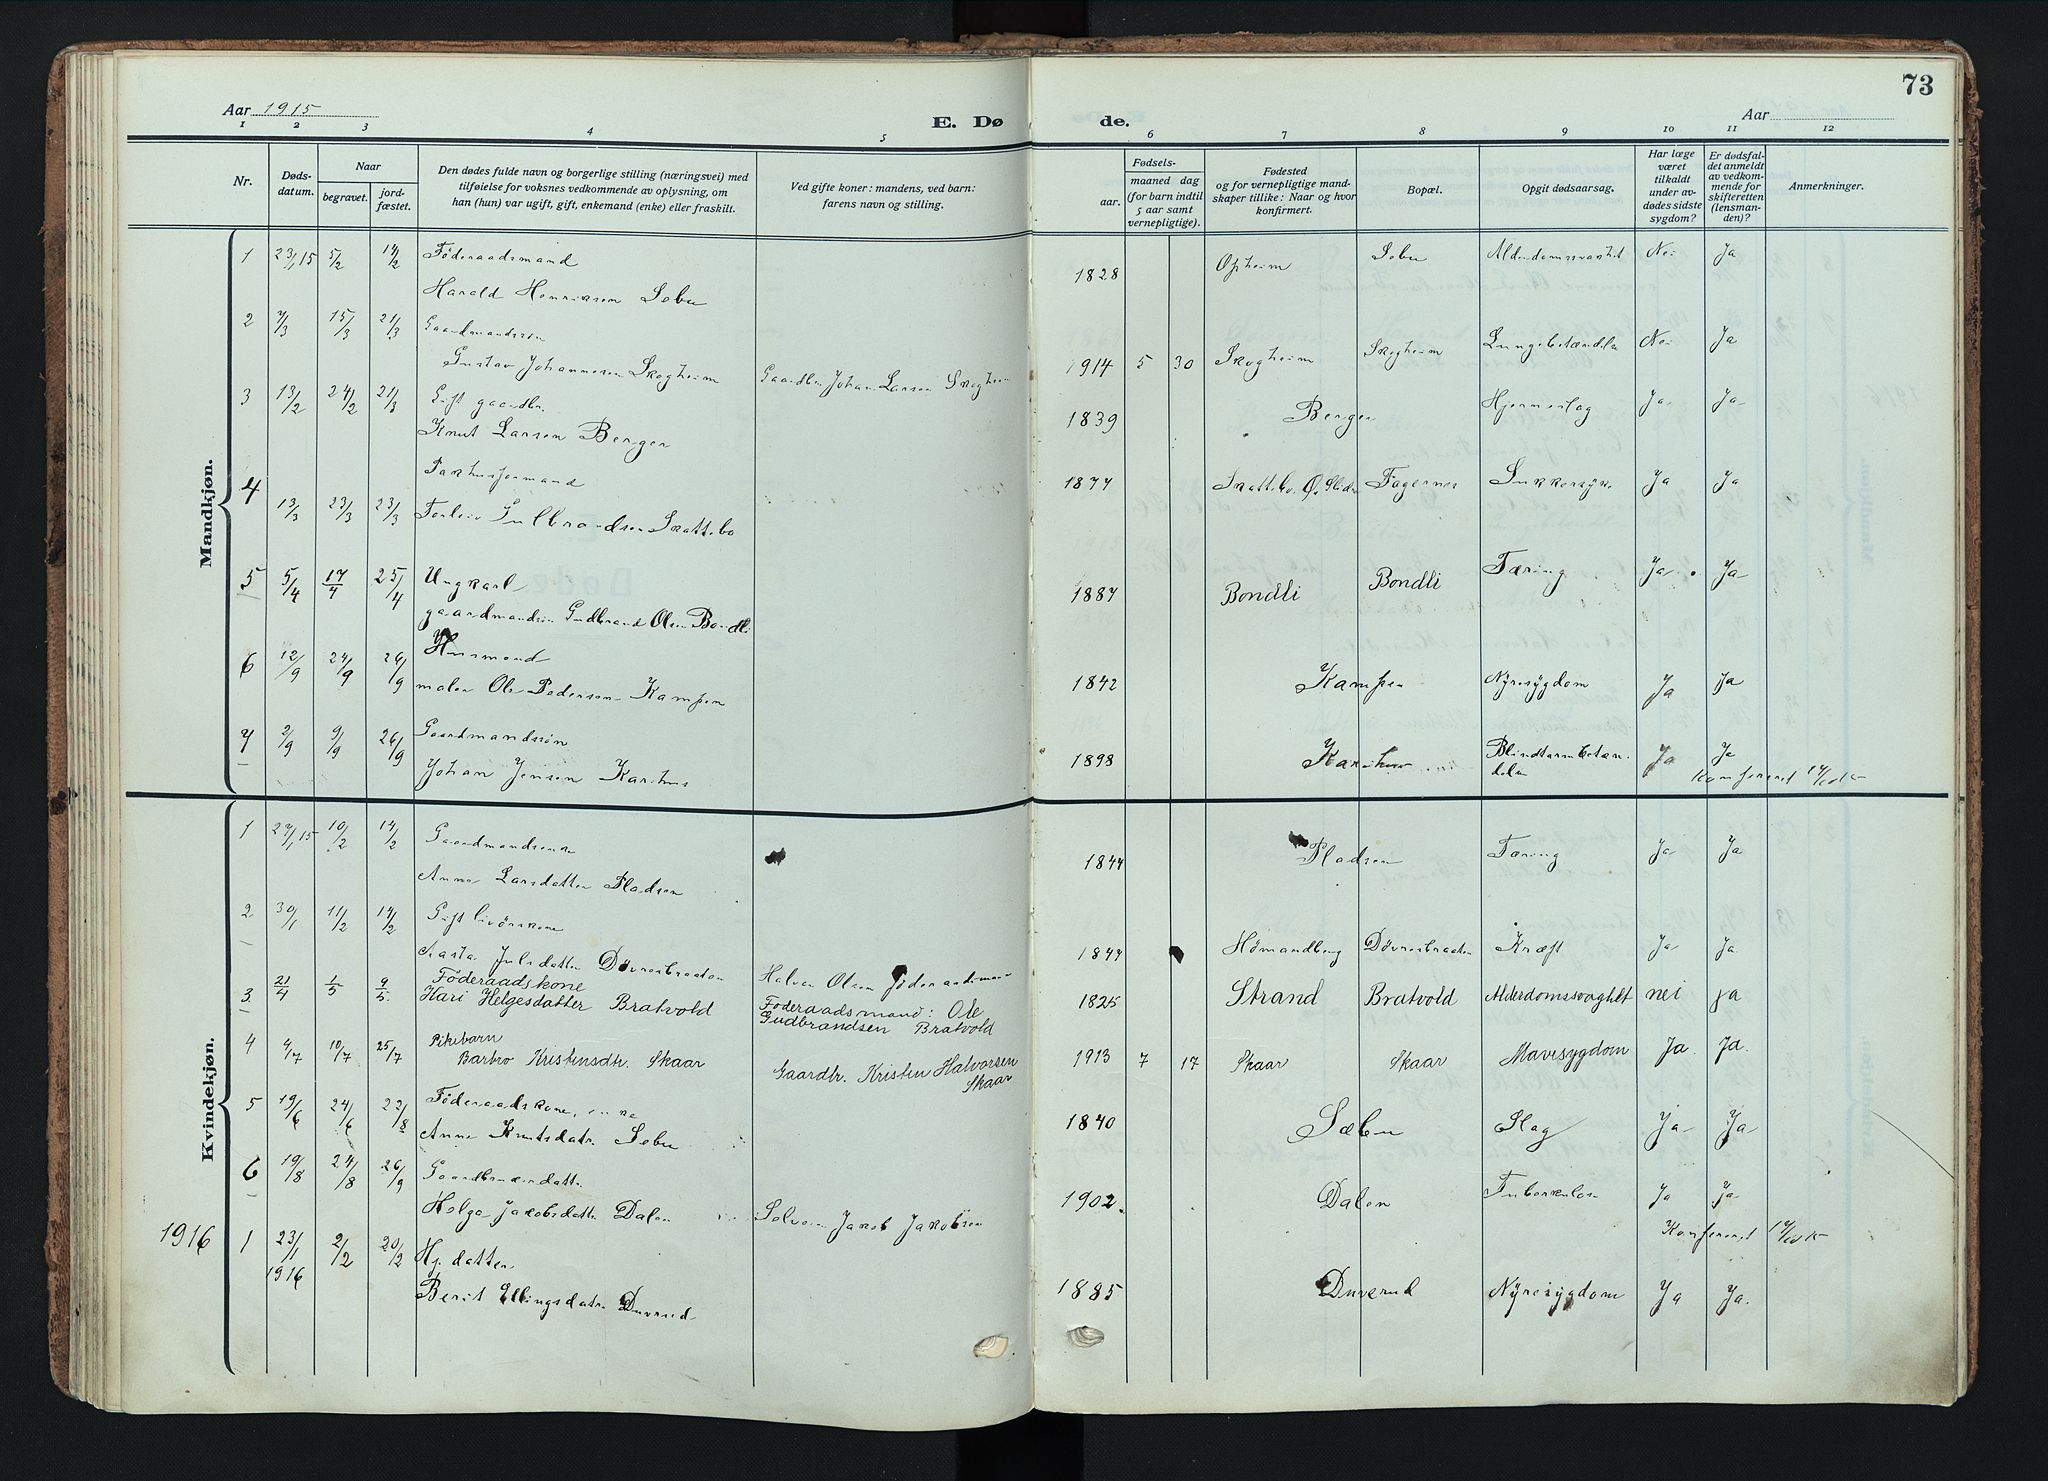 73
Aar 1915
E. Døde.
Aar
1 2 3 4 5 6 7 8 9 10 11 12
Nr.
Dødsdatum.
Naar
begravet.
jordfæstet.
Den dødes fulde navn og borgerlige stilling (næringsvei) med
tilføielse for voksnes vedkommende av oplysning, om
han (hun) var ugift, gift, enkemand (enke) eller fraskilt.
Ved gifte koner: mandens, ved barn:
farens navn og stilling.
Fødsels-
aar.
maaned dag
(for barn indtil
5 aar samt
vernepligtige).
Fødested
og for vernepligtige mand-
skaper tillike: Naar og hvor
konfirmert.
Bopæl.
Opgit dødsaarsag.
Har læge
været
tilkaldt
under av-
dødes sidste
sygdom?
Er dødsfal-
det anmeldt
av vedkom-
mende for
skifteretten
(lensman-
den)?
Anmerkninger.
Mandkjøn.
1 23/1 15 5/2 14/2 Föderaadsmand
Harald Henriksen Sebu 1828 Opheim Sebu Alderdomssvaghet Nei Ja
2 7/3 15/3 21/3 Gaardmandssön
Gustav Johannesen Skogheim Gaardbr. Johan Larsen Skogheim 1914 5 30 Skogheim Skogheim Lungebetændelse Nei Ja
3 13/2 24/2 21/3 Gift gaardbr.
Knut Larsen Berger 1839 Berger Hjerneslag Ja Ja
4 13/3 23/3 23/3 Pakhusformand
Torleiv Gulbrandsen Skattebo 1877 Skattebo Ø. Slidre Fagernes Sukkersyke Ja Ja
5 5/4 17/4 25/4 Ungkarl
gaardmandssön Gudbrand Olsen Bondli 1887 Bondli Bondli Tæring Ja Ja
6 12/9 24/9 26/9 Husmand
maler Ole Pedersen Kampen 1842 Kampen Nyresygdom Ja Ja
7 2/9 9/9 26/9 Gaardmandssön
Johan Jensen Karihus 1898 Karihus Blindtarmbetændelse Ja Ja
Konfereret
Kvindekjøn.
1 27/1 15 10/2 14/2 Gaardmandsenke
Anne Larsdatter Pladsen 1844 Pladsen Tæring Ja Ja
2 30/1 11/2 14/2 Gift livörskone
Aasta Julsdatter Døvresbraaten Halvor Olsen föderaadsmand 1847 Hømandberg Døvresbraaten Kræft Ja Ja
3 21/4 1/5 9/5 Föderaadskone
Kari Helgesdatter Bratvold Föderaadsmand: Ole
Gudbrandsen Bratvold 1825 Strand Bratvold Alderdomssvaghet nei ja
4 4/7 10/7 25/7 Pikebarn
Barbro Kristensdtr. Skaar Gaardbr. Kristen Halvorsen
Skaar 1913 7 17 Skaar Skaar Mavesygdom Ja Ja
5 19/6 24/6 22/8 Föderaadskone, enke
Anne Knutsdatr. Sebu 1840 Sæbu Slag Ja Ja
6 19/8 24/8 26/9 Gaardbrukerdatter
Helga Jakobsdatter Dalen Selveier Jakob Jakobsen 1902 Dalen Tuberkulose Ja Ja
Konfereret
1916 1 23/1 1916 2/2 20/2 Hj. datter
Berit Ellingsdatr. Duverud 1885 Duverud Nyresygdom Ja Ja.